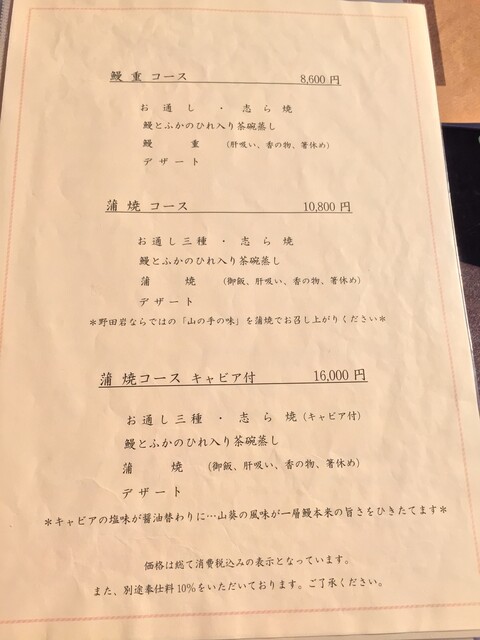 鰻 重 コース 8,600 円
お 通 し ・ 志 ら 焼
鰻とふかのひれ入り茶碗蒸し
鰻 重 (肝吸い、香の物、箸休め)
デ ザ ー ト
蒲 焼 コース 10,800 円
お 通 し 三 種 ・ 志 ら 焼
鰻とふかのひれ入り茶碗蒸し
蒲 焼 (御飯、肝吸い、香の物、箸休め)
デ ザ ー ト
＊野田岩ならではの「山の手の味」を蒲焼でお召し上がりください＊
蒲 焼コース キャビア付 16,000 円
お 通 し 三 種 ・ 志 ら 焼 (キャビア付)
鰻とふかのひれ入り茶碗蒸し
蒲 焼 (御飯、肝吸い、香の物、箸休め)
デ ザ ー ト
＊キャビアの塩味が醤油替わりに…山葵の風味が一層鰻本来の旨さをひきたてます＊
価格は総て消費税込みの表示となっています。
また、別途奉仕料 10%をいただいております。ご了承ください。